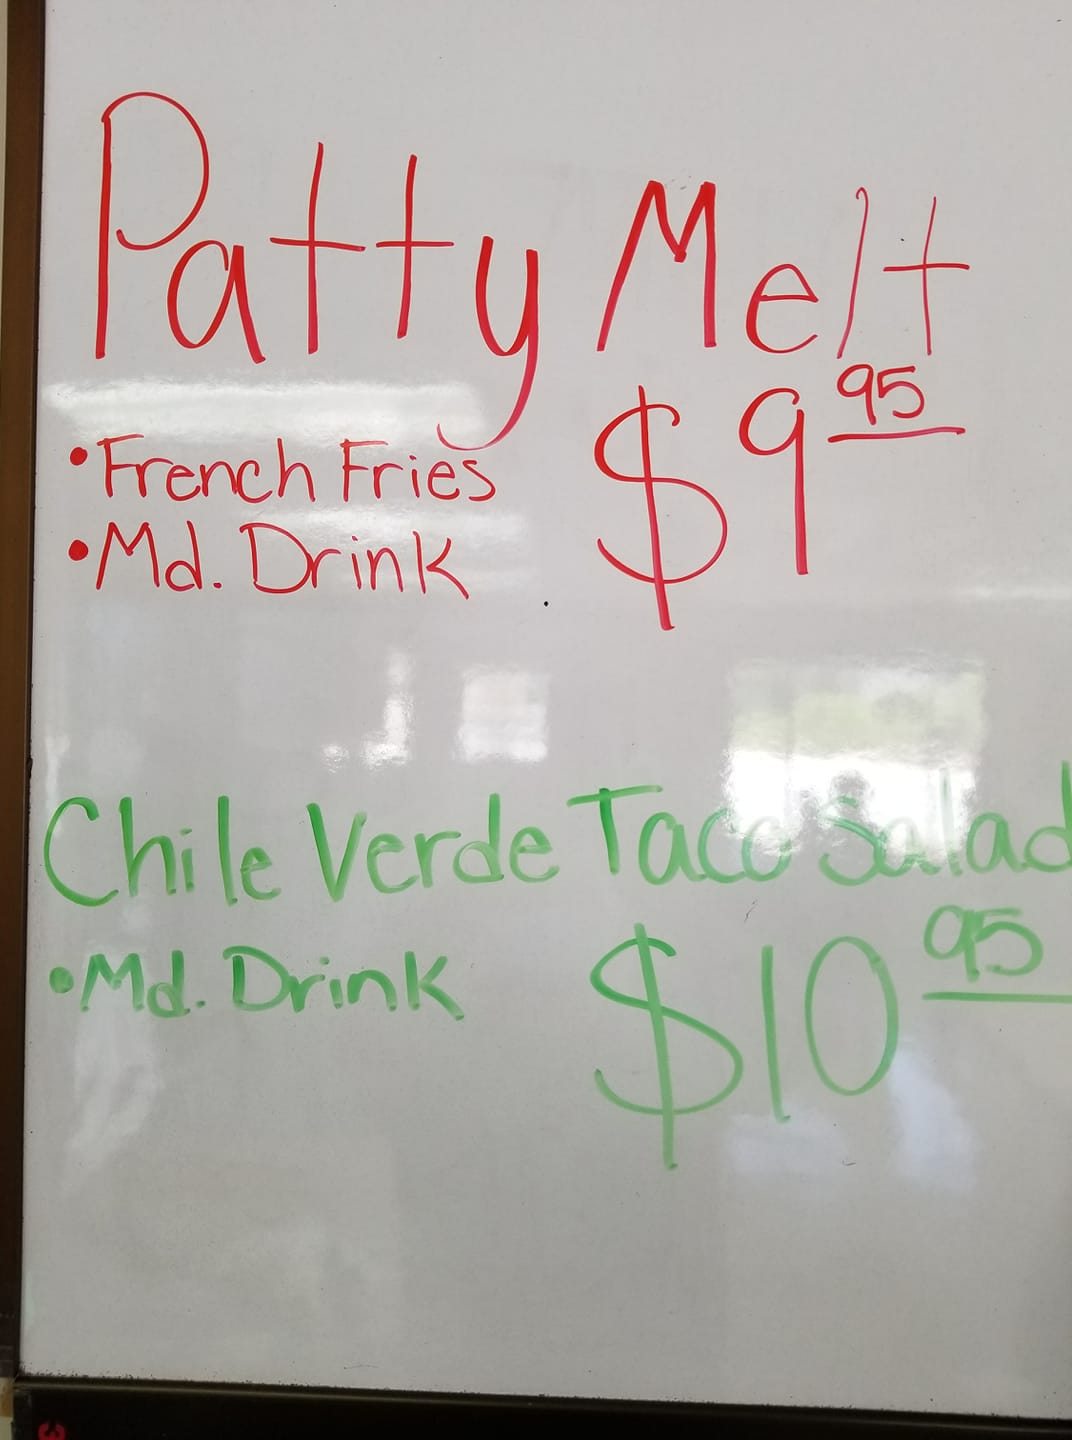 Patty Melt
$9 95
• French Fries
• Md. Drink
Chile Verde Taco Salad
• Md. Drink
$10 95
3